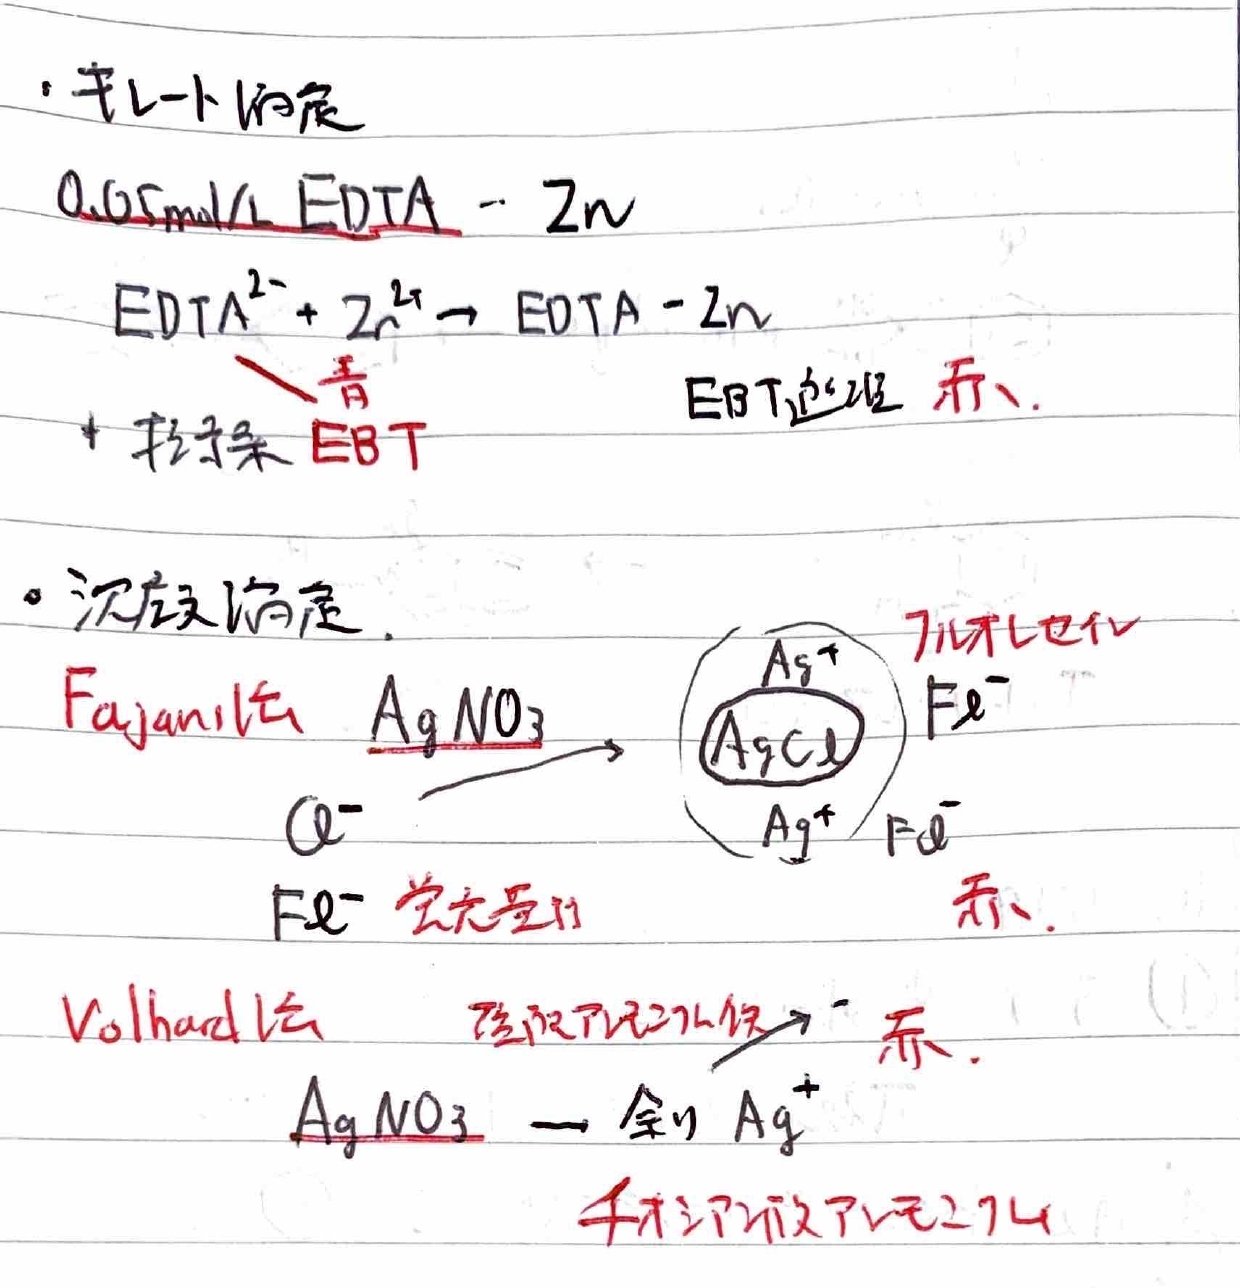 ・キレート滴定
0.05mol/L EDTA - Zn
EDTA²⁻ + Zn²⁺ → EDTA - Zn
青
EBT過程 赤.
+ 指示薬 EBT
・沈殿滴定.
フルオレセイン
Fajans法 AgNO₃ Ag⁺ Fl⁻
AgCl
Cl⁻ Ag⁺ Fl⁻
Fl⁻ 蛍光黄 赤.
Volhard法 硫酸アンモニウム鉄 - 赤.
AgNO₃ — 余り Ag⁺
チオシアン酸アンモニウム